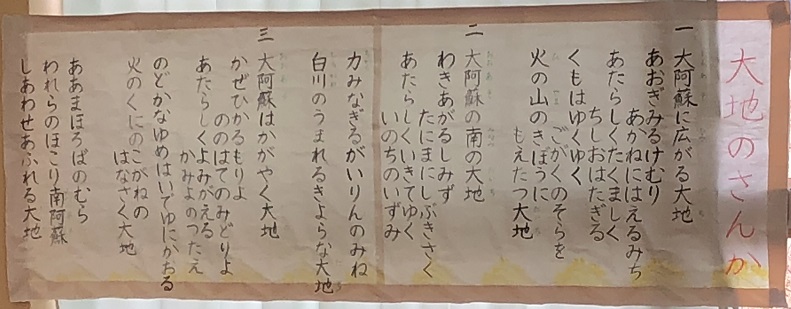 大地のさんか
一 大阿蘇に広がる大地
あおぎみるけむり
あかねにはえるみち
あたらしくたくましく
ちしおはたぎる
くもはゆくゆく
ごがくのそらを
火の山のきぼうに
もえたつ大地
二 大阿蘇の南の大地
わきあがるしみず
たにまにしぶきさく
あたらしくいきてゆく
いのちのいずみ
力みなぎるがいりんのみね
白川のうまれるきよらな大地
三 大阿蘇はかがやく大地
かぜひかるもりよ
ののはてのみどりよ
あたらしくよみがえる
かみよのつたえ
のどかなゆめはいでゆにかおる
火のくにのこがねの
はなさく大地
ああまほろばのむら
われらのほこり南阿蘇
しあわせあふれる大地